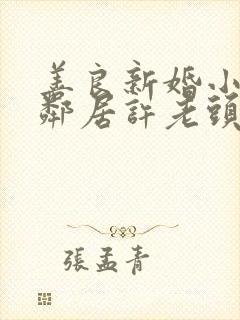 善良新婚小
鄰居許老頭
張孟青